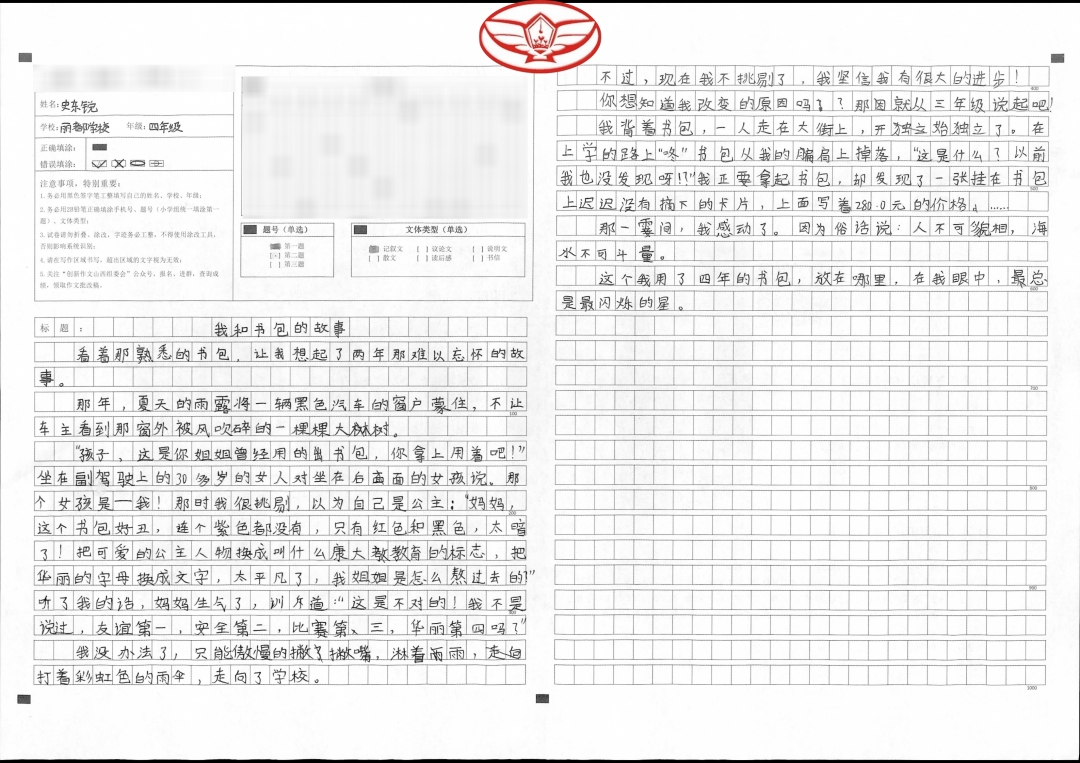 姓名:史东锐
学校:丽都学校 年级:四年级
正确填涂:
错误填涂:
注意事项,特别重要:
1.务必用黑色签字笔工整填写自己的姓名、学校、年级;
2.务必用2B铅笔正确填涂手机号、题号(小学组统一填涂第一
题)、文体类型;
3.试卷请勿折叠、涂改,字迹务必工整,不得使用涂改工具,
否则影响系统识别;
4.请在写作区域书写,超出区域的文字视为无效;
5.关注“创新作文山西组委会”公众号,报名、进群、查询成
绩、领取作文批改稿。
题号(单选)
第一题
第二题
第三题
文体类型(单选)
记叙文 [ ] 议论文 [ ] 说明文
[ ] 散文 [ ] 读后感 [ ] 书信
标题: 我和书包的故事
看着那熟悉的书包,让我想起了两年那难以忘怀的故
事。
那年,夏天的雨露将一辆黑色汽车的窗户蒙住,不让
100
车主看到那窗外被风吹碎的一棵棵大树。
“孩子,这是你姐姐曾经用的书包,你拿上用着吧!”
坐在副驾驶上的30多岁的女人对坐在后面的女孩说。那
个女孩是一我!那时我很挑剔,以为自己是公主:“妈妈,
200
这个书包好丑,连个紫色都没有,只有红色和黑色,太暗
了!把可爱的公主人物换成叫什么康大教教育的标志,把
华丽的字母换成文字,太平凡了,我姐姐是怎么熬过去的?”
听了我的话,妈妈生气了,训斥道:“这是不对的!我不是
300
说过,友谊第一,安全第二,比赛第、三,华丽第四吗?”
我没办法了,只能傲慢的撇了撇嘴,淋着雨雨,走向
打着彩虹色的雨伞,走向了学校。
不过,现在我不挑剔了,我坚信我有很大的进步!
400
你想知道我改变的原因吗?那因就从三年级说起吧!
我背着书包,一人走在大街上,开独立始独立了。在
上学的路上“咚”书包从我的肩上掉落,“这是什么?以前
我也没发现呀!?”我正要拿起书包,却发现了一张挂在书包
500
上迟迟没有摘下的卡片,上面写着280.0元的价格。……
那一霎间,我感动了。因为俗话说:人不可貌相,海
水不可斗量。
这个我用了四年的书包,放在哪里,在我眼中,最总
600
是最闪烁的星。
700
800
900
1000